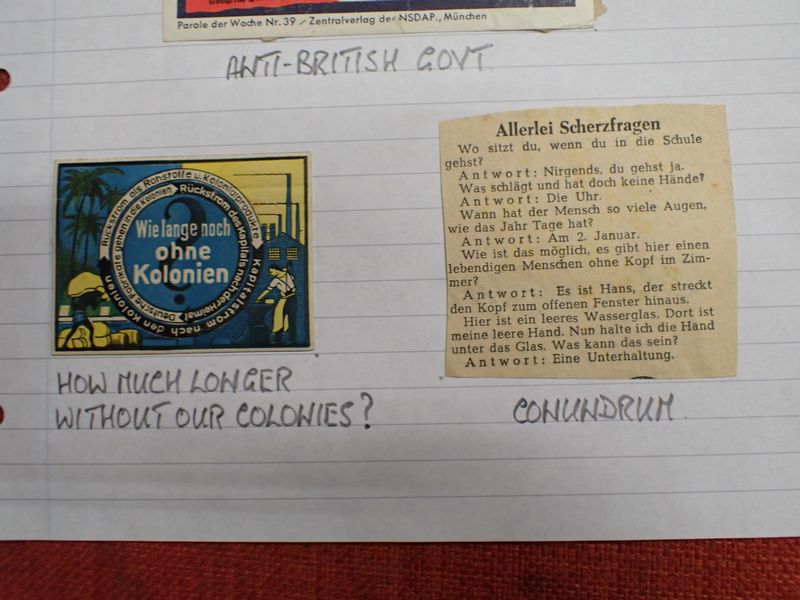 Parole der Woche Nr. 39 / Zentralverlag der NSDAP., München
ANTI-BRITISH GOVT
Rückstrom als Rohstoffe u. Kolonialprodukte
Kapitalstrom nach den Kolonien
Deutsche Fabrikate gehen in die Kolonien
Rückstrom des Kapitals nach der Heimat
?
Wie lange noch
ohne
Kolonien
HOW MUCH LONGER
WITHOUT OUR COLONIES?
Allerlei Scherzfragen
Wo sitzt du, wenn du in die Schule
gehst?
Antwort: Nirgends, du gehst ja.
Was schlägt und hat doch keine Hände?
Antwort: Die Uhr.
Wann hat der Mensch so viele Augen,
wie das Jahr Tage hat?
Antwort: Am 2. Januar.
Wie ist das möglich, es gibt hier einen
lebendigen Menschen ohne Kopf im Zim-
mer?
Antwort: Es ist Hans, der streckt
den Kopf zum offenen Fenster hinaus.
Hier ist ein leeres Wasserglas. Dort ist
meine leere Hand. Nun halte ich die Hand
unter das Glas. Was kann das sein?
Antwort: Eine Unterhaltung.
CONUNDRUM